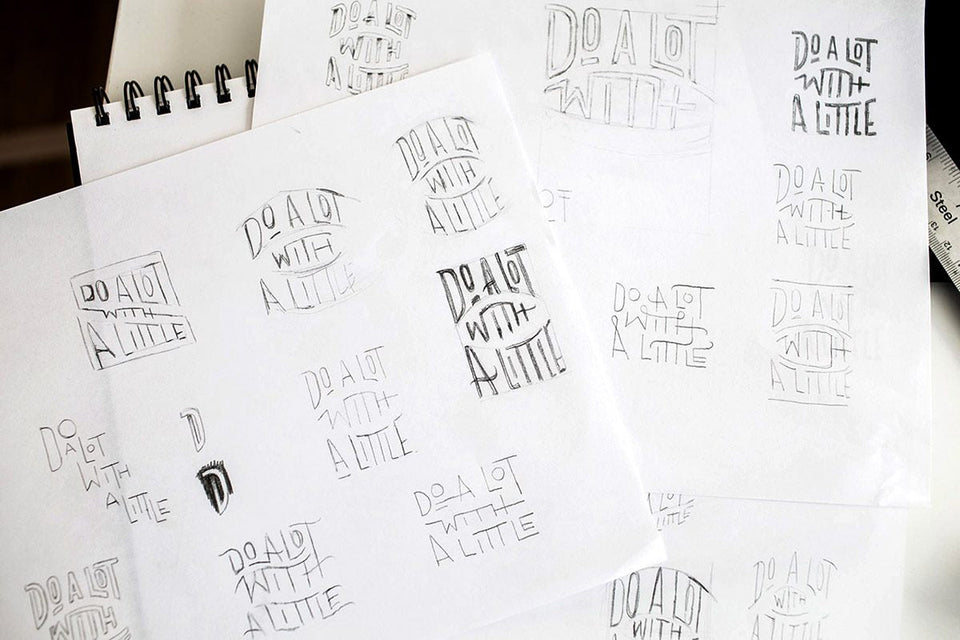 DO A LOT
WITH
A LITTLE
DO A LOT
WITH
DO A LOT
WITH
A LITTLE
DO A LOT
WITH
A LITTLE
DO A LOT
WITH
A LITTLE
DO A LOT
WITH
A LITTLE
Steel
12 13
OT
DO A LOT
WITH
A LITTLE
DO A LOT
WITH
A LITTLE
DO A LOT
WITH
A LITTLE
DO A LOT
WITH
A LITTLE
DO A LOT
WITH
A LITTLE
DO A LOT
WITH
A LITTLE
DO A LOT
WITH
A LITTLE
D
D
DO A LOT
WITH
A LITTLE
DO A LOT
WITH
A LITTLE
DO A LOT
WITH
DO A LOT
WITH
DO A LOT
WITH
A LITTLE